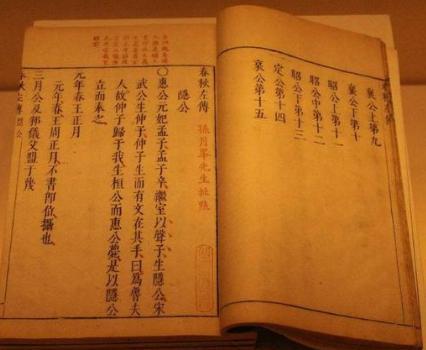 襄公上第九
襄公下第十
昭公上第十一
昭公中第十二
昭公下第十三
定公第十四
哀公第十五
春秋左傳
孫月峯先生批點
隱公
○惠公元妃孟子孟子卒繼室以聲子生隱公宋
武公生仲子仲子生而有文在其手曰爲魯夫
人故仲子歸于我生桓公而惠公薨是以隱公
立而奉之
元年春王正月
元年春王周正月不書即位攝也
三月公及邾儀父盟于蔑